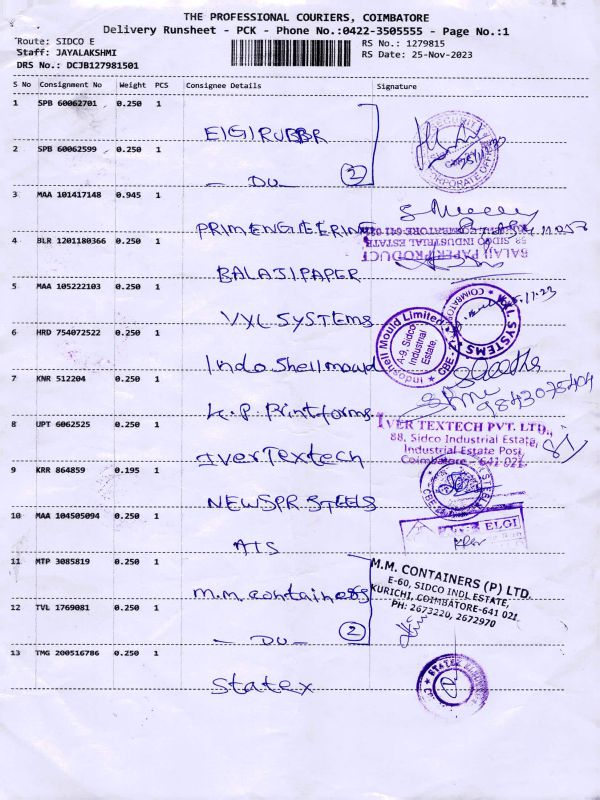 THE PROFESSIONAL COURIERS, COIMBATORE
Delivery Runsheet - PCK - Phone No.:0422-3505555 - Page No.:1
Route: SIDCO E
RS No.: 1279815
Staff: JAYALAKSHMI
RS Date: 25-Nov-2023
DRS No.: DCJB127981501
S No Consignment No Weight PCS Consignee Details Signature
1 SPB 60062701 0.250 1
ElGIRUBBR
2 SPB 60062599 0.250 1
- DU - 2
CORPORATE OFFICE
3 MAA 101417148 0.945 1
PRIMENGIEERING
4 BLR 1201180366 0.250 1
58, SIDCO INDUSTRIAL ESTATE
BALAJI PAPER PRODUCT
BALAJIPAPER
5 MAA 105222103 0.250 1
VXL SYSTEMS
COIMBATORE
6 HRD 754072522 0.250 1
Indoshell Mould Limited
A-9, Sidco
Industrial
Estate,
Indo Shell mould
7 KNR 512204 0.250 1
9843075404
K.P. Printforms.
8 UPT 6062525 0.250 1
IVER TEXTECH PVT. LTD.,
88, Sidco Industrial Estate,
Industrial Estate Post,
Coimbatore - 641 021.
IverTextech
9 KRR 864859 0.195 1
NEWSPR Steels
10 MAA 104505094 0.250 1
ELGI
ATS
11 MTP 3085819 0.250 1
M.M. CONTAINERS (P) LTD.
E-60, SIDCO INDL ESTATE,
KURICHI, COIMBATORE-641 021
PH: 2673220, 2672970
m.m.containers
12 TVL 1769081 0.250 1
- DU - 2
13 TMG 200516786 0.250 1
STATEX
Statex